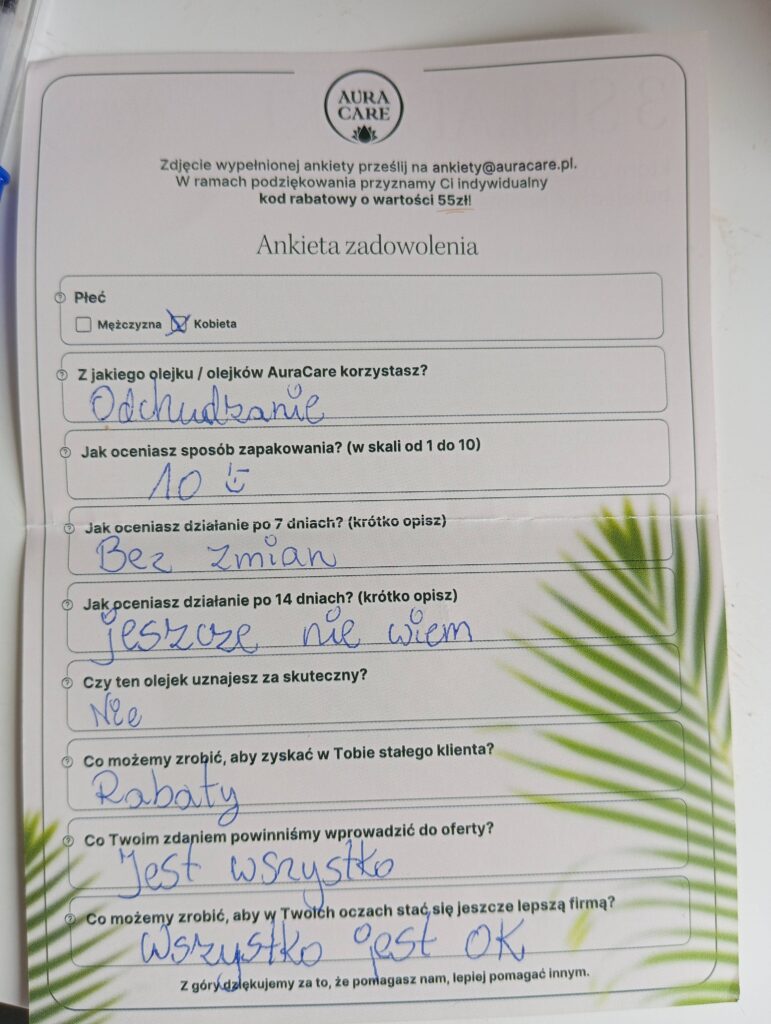 AURA
CARE
Zdjęcie wypełnionej ankiety prześlij na ankiety@auracare.pl.
W ramach podziękowania przyznamy Ci indywidualny
kod rabatowy o wartości 55zł!
Ankieta zadowolenia
Płeć
Mężczyzna Kobieta
Z jakiego olejku / olejków AuraCare korzystasz?
Odchudzanie
Jak oceniasz sposób zapakowania? (w skali od 1 do 10)
10 :)
Jak oceniasz działanie po 7 dniach? (krótko opisz)
Bez zmian
Jak oceniasz działanie po 14 dniach? (krótko opisz)
jeszcze nie wiem
Czy ten olejek uznajesz za skuteczny?
Nie
Co możemy zrobić, aby zyskać w Tobie stałego klienta?
Rabaty
Co Twoim zdaniem powinniśmy wprowadzić do oferty?
Jest wszystko
Co możemy zrobić, aby w Twoich oczach stać się jeszcze lepszą firmą?
Wszystko jest OK
Z góry dziękujemy za to, że pomagasz nam, lepiej pomagać innym.